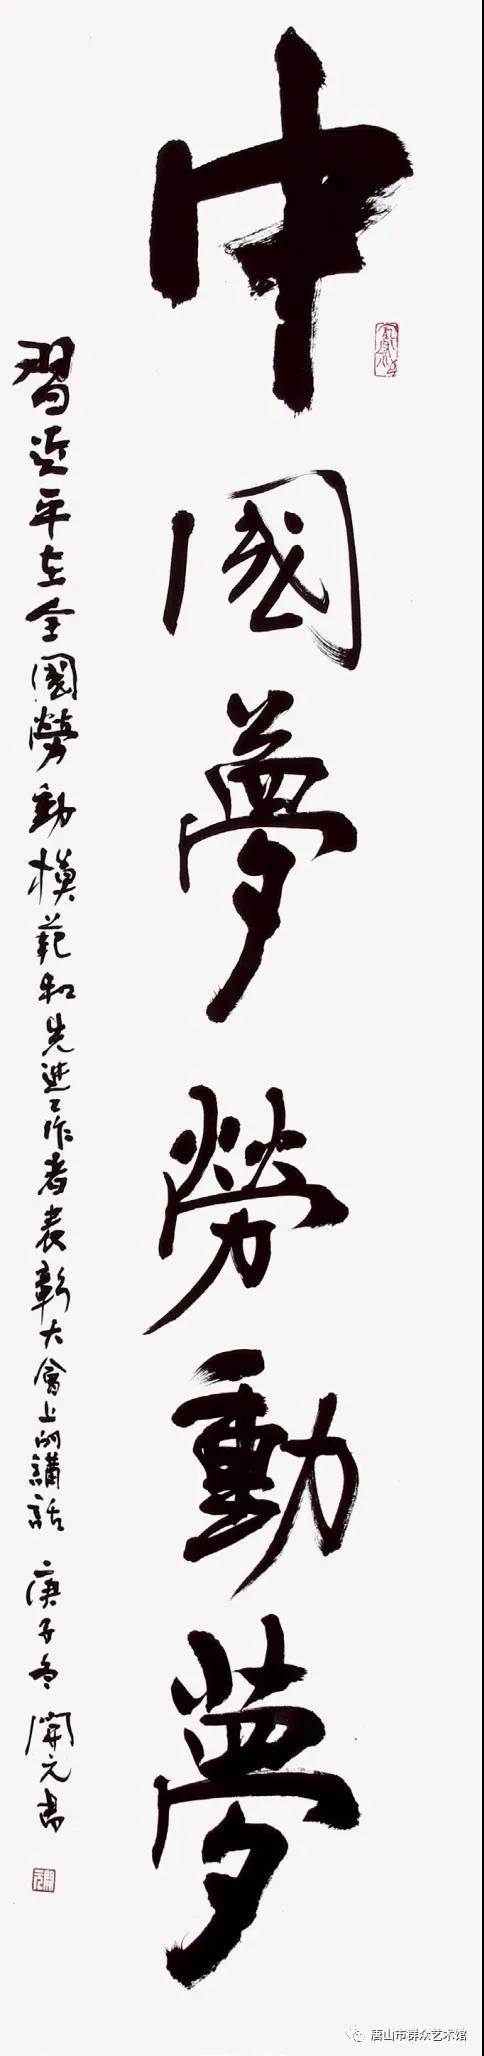 中國夢勞動夢
習近平在全國勞動模範和先進工作者表彰大會上的講話 庚子冬 開元書
唐山市群众艺术馆